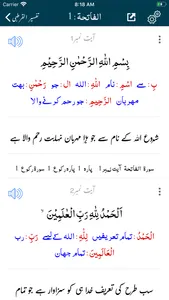 8:18 AM
الفاتحة: 1
تفسیر القرطبی
آیت نمبر 1
بِسْمِ اللّٰهِ الرَّحْمٰنِ الرَّحِیْمِ
بِ: سے اسْمِ: نام اللّٰهِ: اللہ ال: جو رَحْمٰنِ: بہت
مہربان الرَّحِیْمِ: جو رحم کرنے والا
شروع اللہ کے نام سے جو بڑا مہربان نہایت رحم والا ہے
سورۃ الفاتحۃ آیت نمبر 1 پارہ 1 رکوع 1 سورۃ رکوع 1
آیت نمبر 2
اَلْحَمْدُ لِلّٰهِ رَبِّ الْعٰلَمِیْنَ
الْحَمْدُ: تمام تعریفیں لِلّٰهِ: اللہ کے لیے رَبِّ: رب
الْعٰلَمِیْنَ: تمام جہان
سب طرح کی تعریف خدا ہی کو سزاوار ہے جو تمام